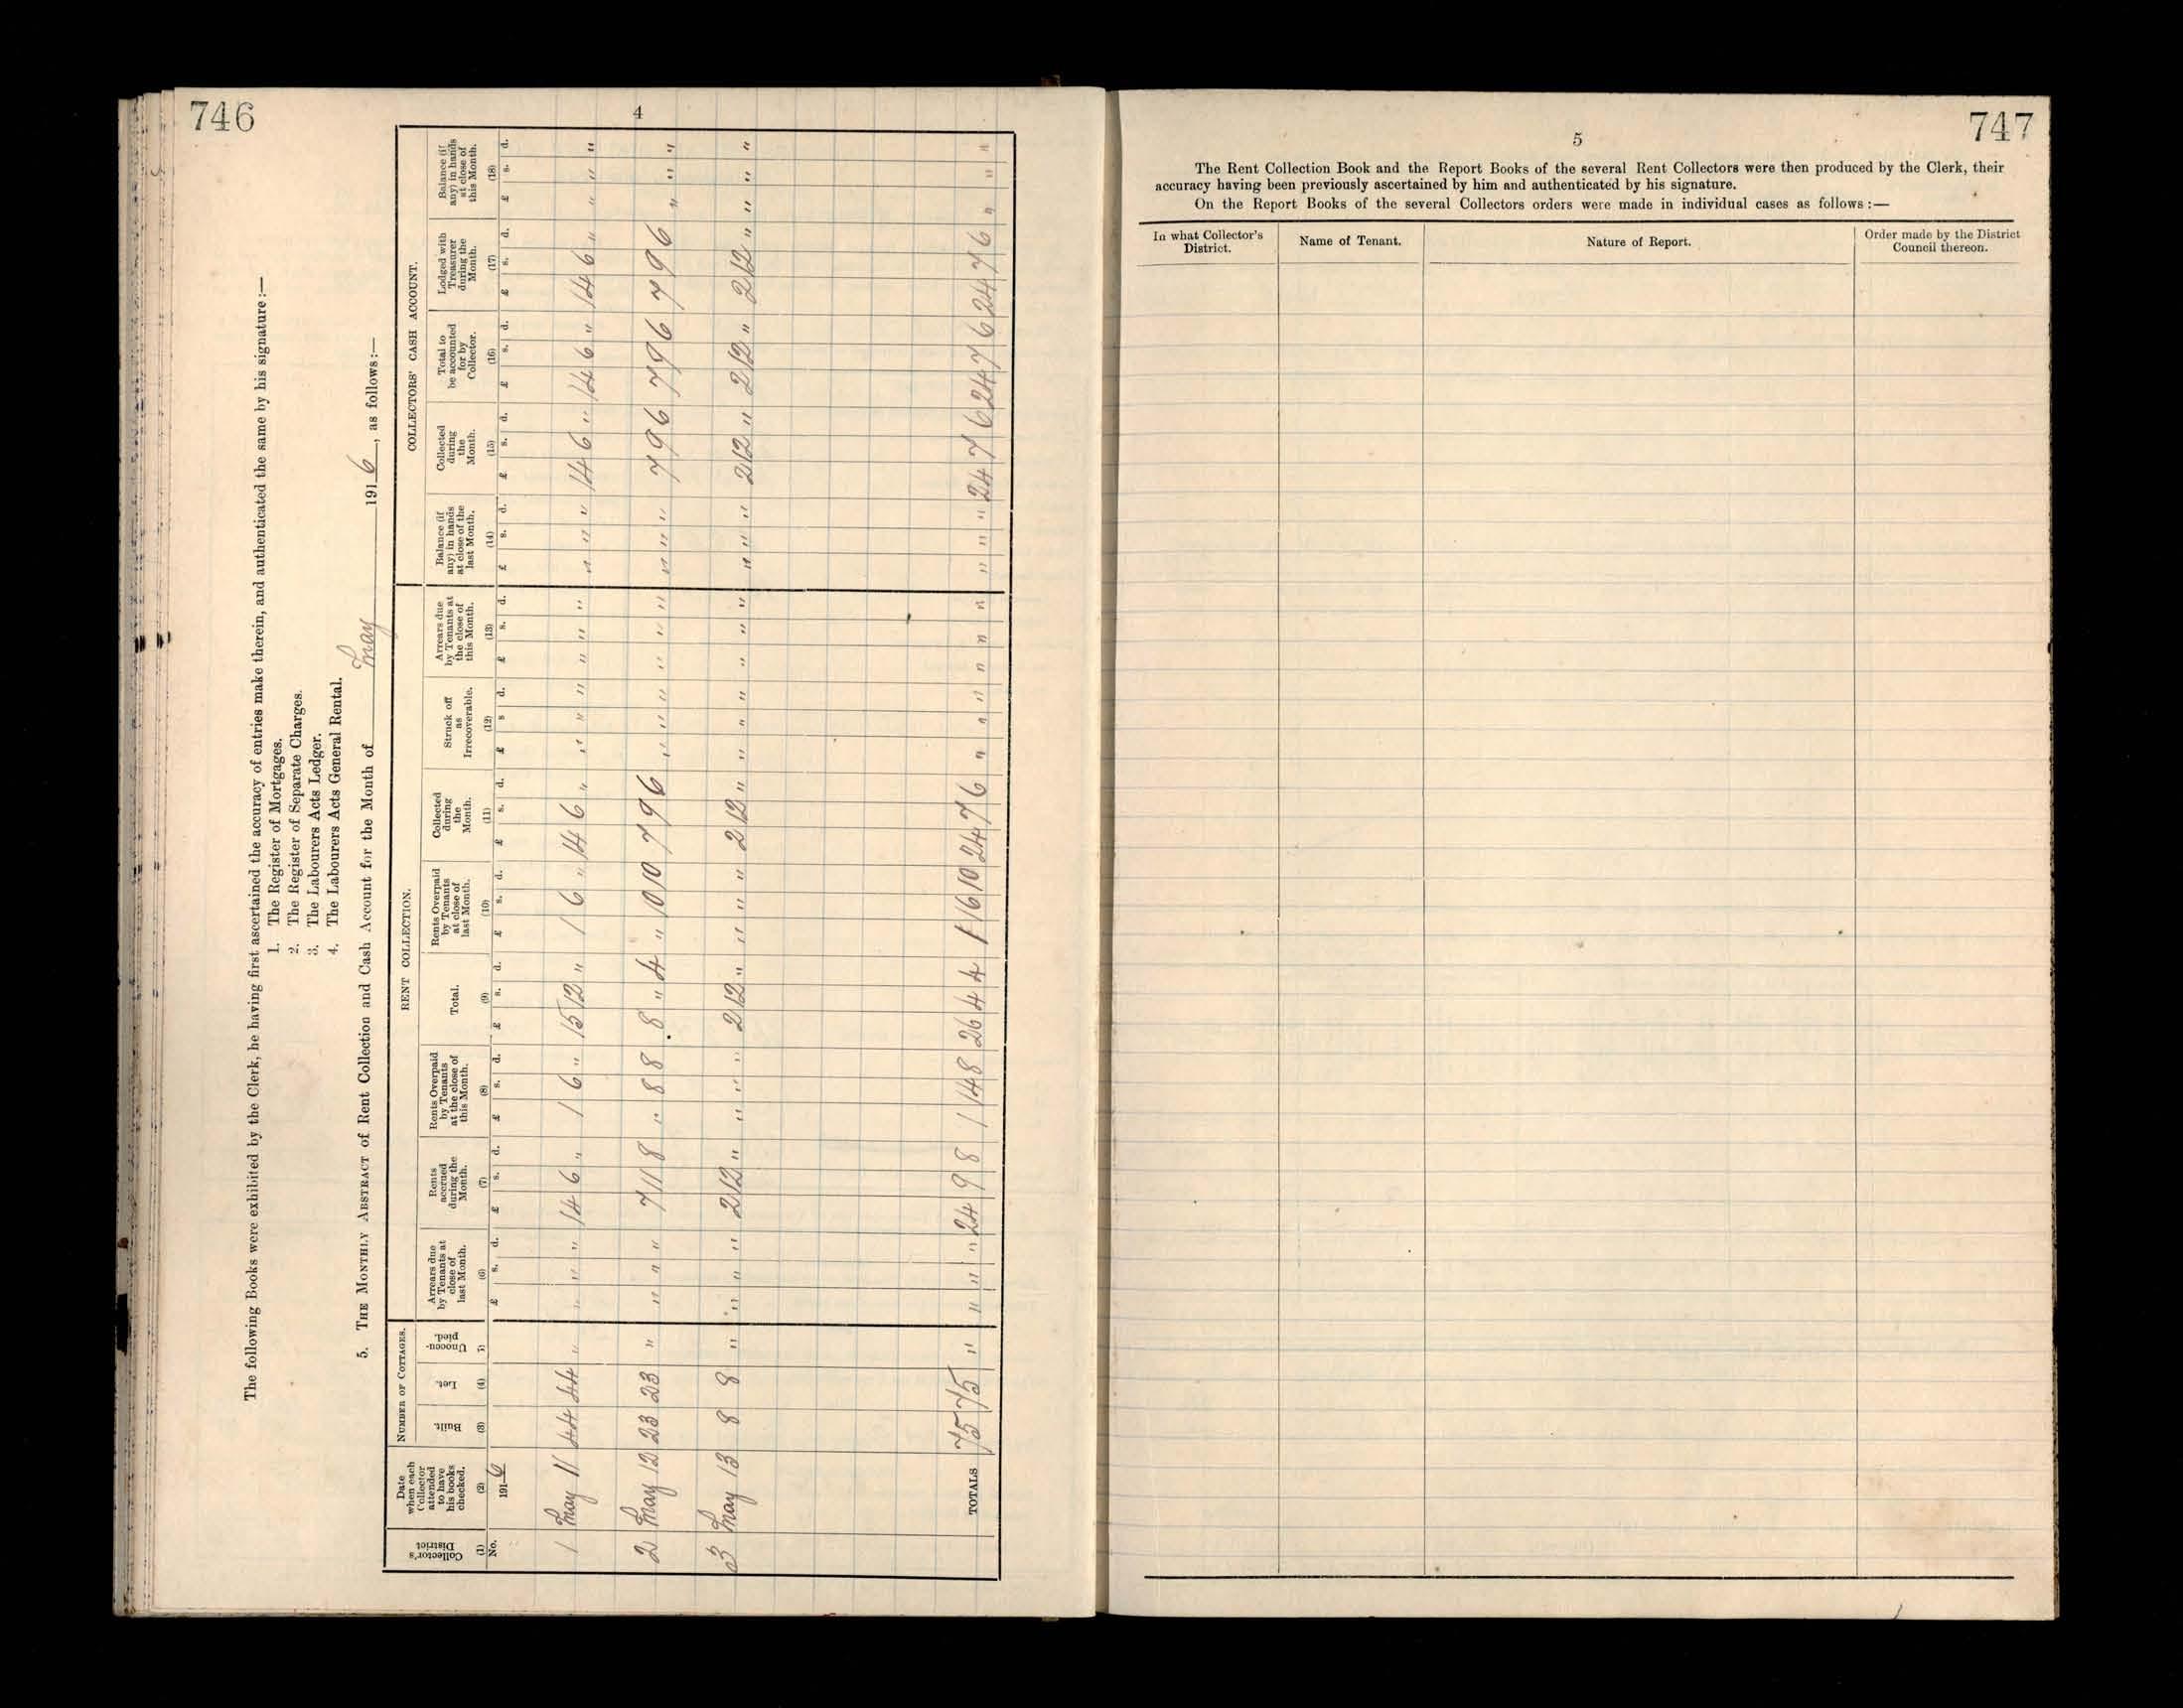 746
4
The following Books were exhibited by the Clerk, he having first ascertained the accuracy of entries make therein, and authenticated the same by his signature :—
1. The Register of Mortgages.
2. The Register of Separate Charges.
3. The Labourers Acts Ledger.
4. The Labourers Acts General Rental.
5. THE MONTHLY ABSTRACT of Rent Collection and Cash Account for the Month of May 1916, as follows:—
NUMBER OF COTTAGES. RENT COLLECTION. COLLECTORS' CASH ACCOUNT.
Collector's District
Date when each Collector attended to have his books checked.
Built.
Let.
Unoccu-pied.
Arrears due by Tenants at close of last Month.
Rents accrued during the Month.
Rents Overpaid by Tenants at the close of this Month.
Total.
Rents Overpaid by Tenants at close of last Month.
Collected during the Month.
Struck off as Irrecoverable.
Arrears due by Tenants at the close of this Month.
Balance (if any) in hands at close of the last Month.
Collected during the Month.
Total to be accounted for by Collector.
Lodged with Treasurer during the Month.
Balance (if any) in hands at close of this Month.
(1) (2) (3) (4) (5) (6) (7) (8) (9) (10) (11) (12) (13) (14) (15) (16) (17) (18)
No. 1916 £ s. d. £ s. d. £ s. d. £ s. d. £ s. d. £ s. d. £ s d. £ s. d. £ s. d. £ s. d. £ s. d. £ s. d. £ s. d.
1 May 11 44 44 " " " " 14 6 " 1 6 " 15 12 " 1 6 " 14 6 " " " " " " " " " " 14 6 " 14 6 " 14 6 " " " "
2 May 12 23 23 " " " " 7 11 8 " 8 8 8 " 4 " 10 10 7 9 6 " " " " " " " " " 7 9 6 7 9 6 7 9 6 " " "
3 May 13 8 8 " " " " 2 12 " " " " 2 12 " " " " 2 12 " " " " " " " " " " 2 12 " 2 12 " 2 12 " " " "
TOTALS 75 75 " " " " 24 9 8 1 14 8 26 4 4 1 16 10 24 7 6 " " " " " " " " " 24 7 6 24 7 6 24 7 6 " " "
747
5
The Rent Collection Book and the Report Books of the several Rent Collectors were then produced by the Clerk, their
accuracy having been previously ascertained by him and authenticated by his signature.
On the Report Books of the several Collectors orders were made in individual cases as follows :—
In what Collector's District. Name of Tenant. Nature of Report. Order made by the District Council thereon.